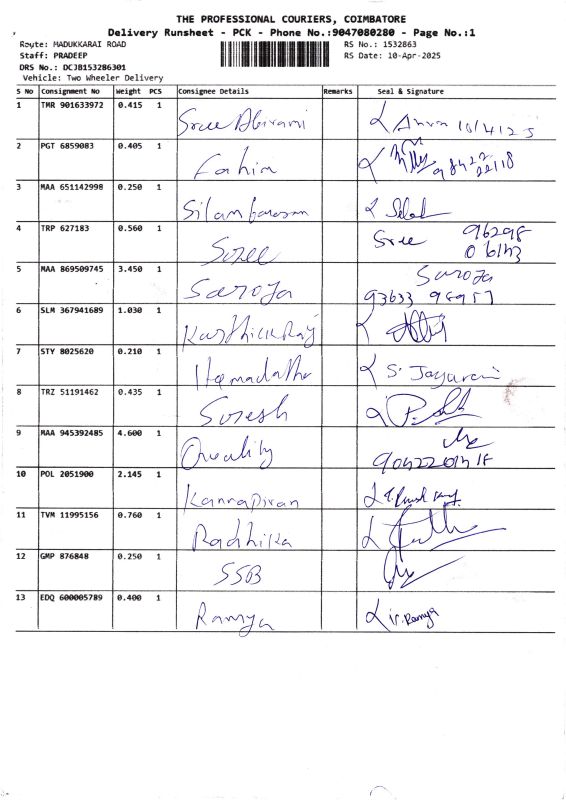 THE PROFESSIONAL COURIERS, COIMBATORE
Delivery Runsheet - PCK - Phone No.:9047080280 - Page No.:1
Route: MADUKKARAI ROAD RS No.: 1532863
Staff: PRADEEP RS Date: 10-Apr-2025
DRS No.: DCJB153286301
Vehicle: Two Wheeler Delivery
S No Consignment No Weight PCS Consignee Details Remarks Seal & Signature
1 TMR 901633972 0.415 1 Sree Abirami Anva 10/4125
2 PGT 6859083 0.405 1 Fahim 98422 22118
3 MAA 651142998 0.250 1 Silambarasan
4 TRP 627183 0.560 1 Sree Sree 96298
06143
5 MAA 869509745 3.450 1 Saroja Saroja
93633 98957
6 SLM 367941689 1.030 1 KarthickRaj
7 STY 8025620 0.210 1 Hemadatha S. Jayarani
8 TRZ 51191462 0.435 1 Suresh
9 MAA 945392485 4.600 1 Quality
10 POL 2051900 2.145 1 Kannapiran
11 TVM 11995156 0.760 1 Radhika
12 GMP 876848 0.250 1 SSB
13 EDQ 600005789 0.400 1 Ramya V. Ramya